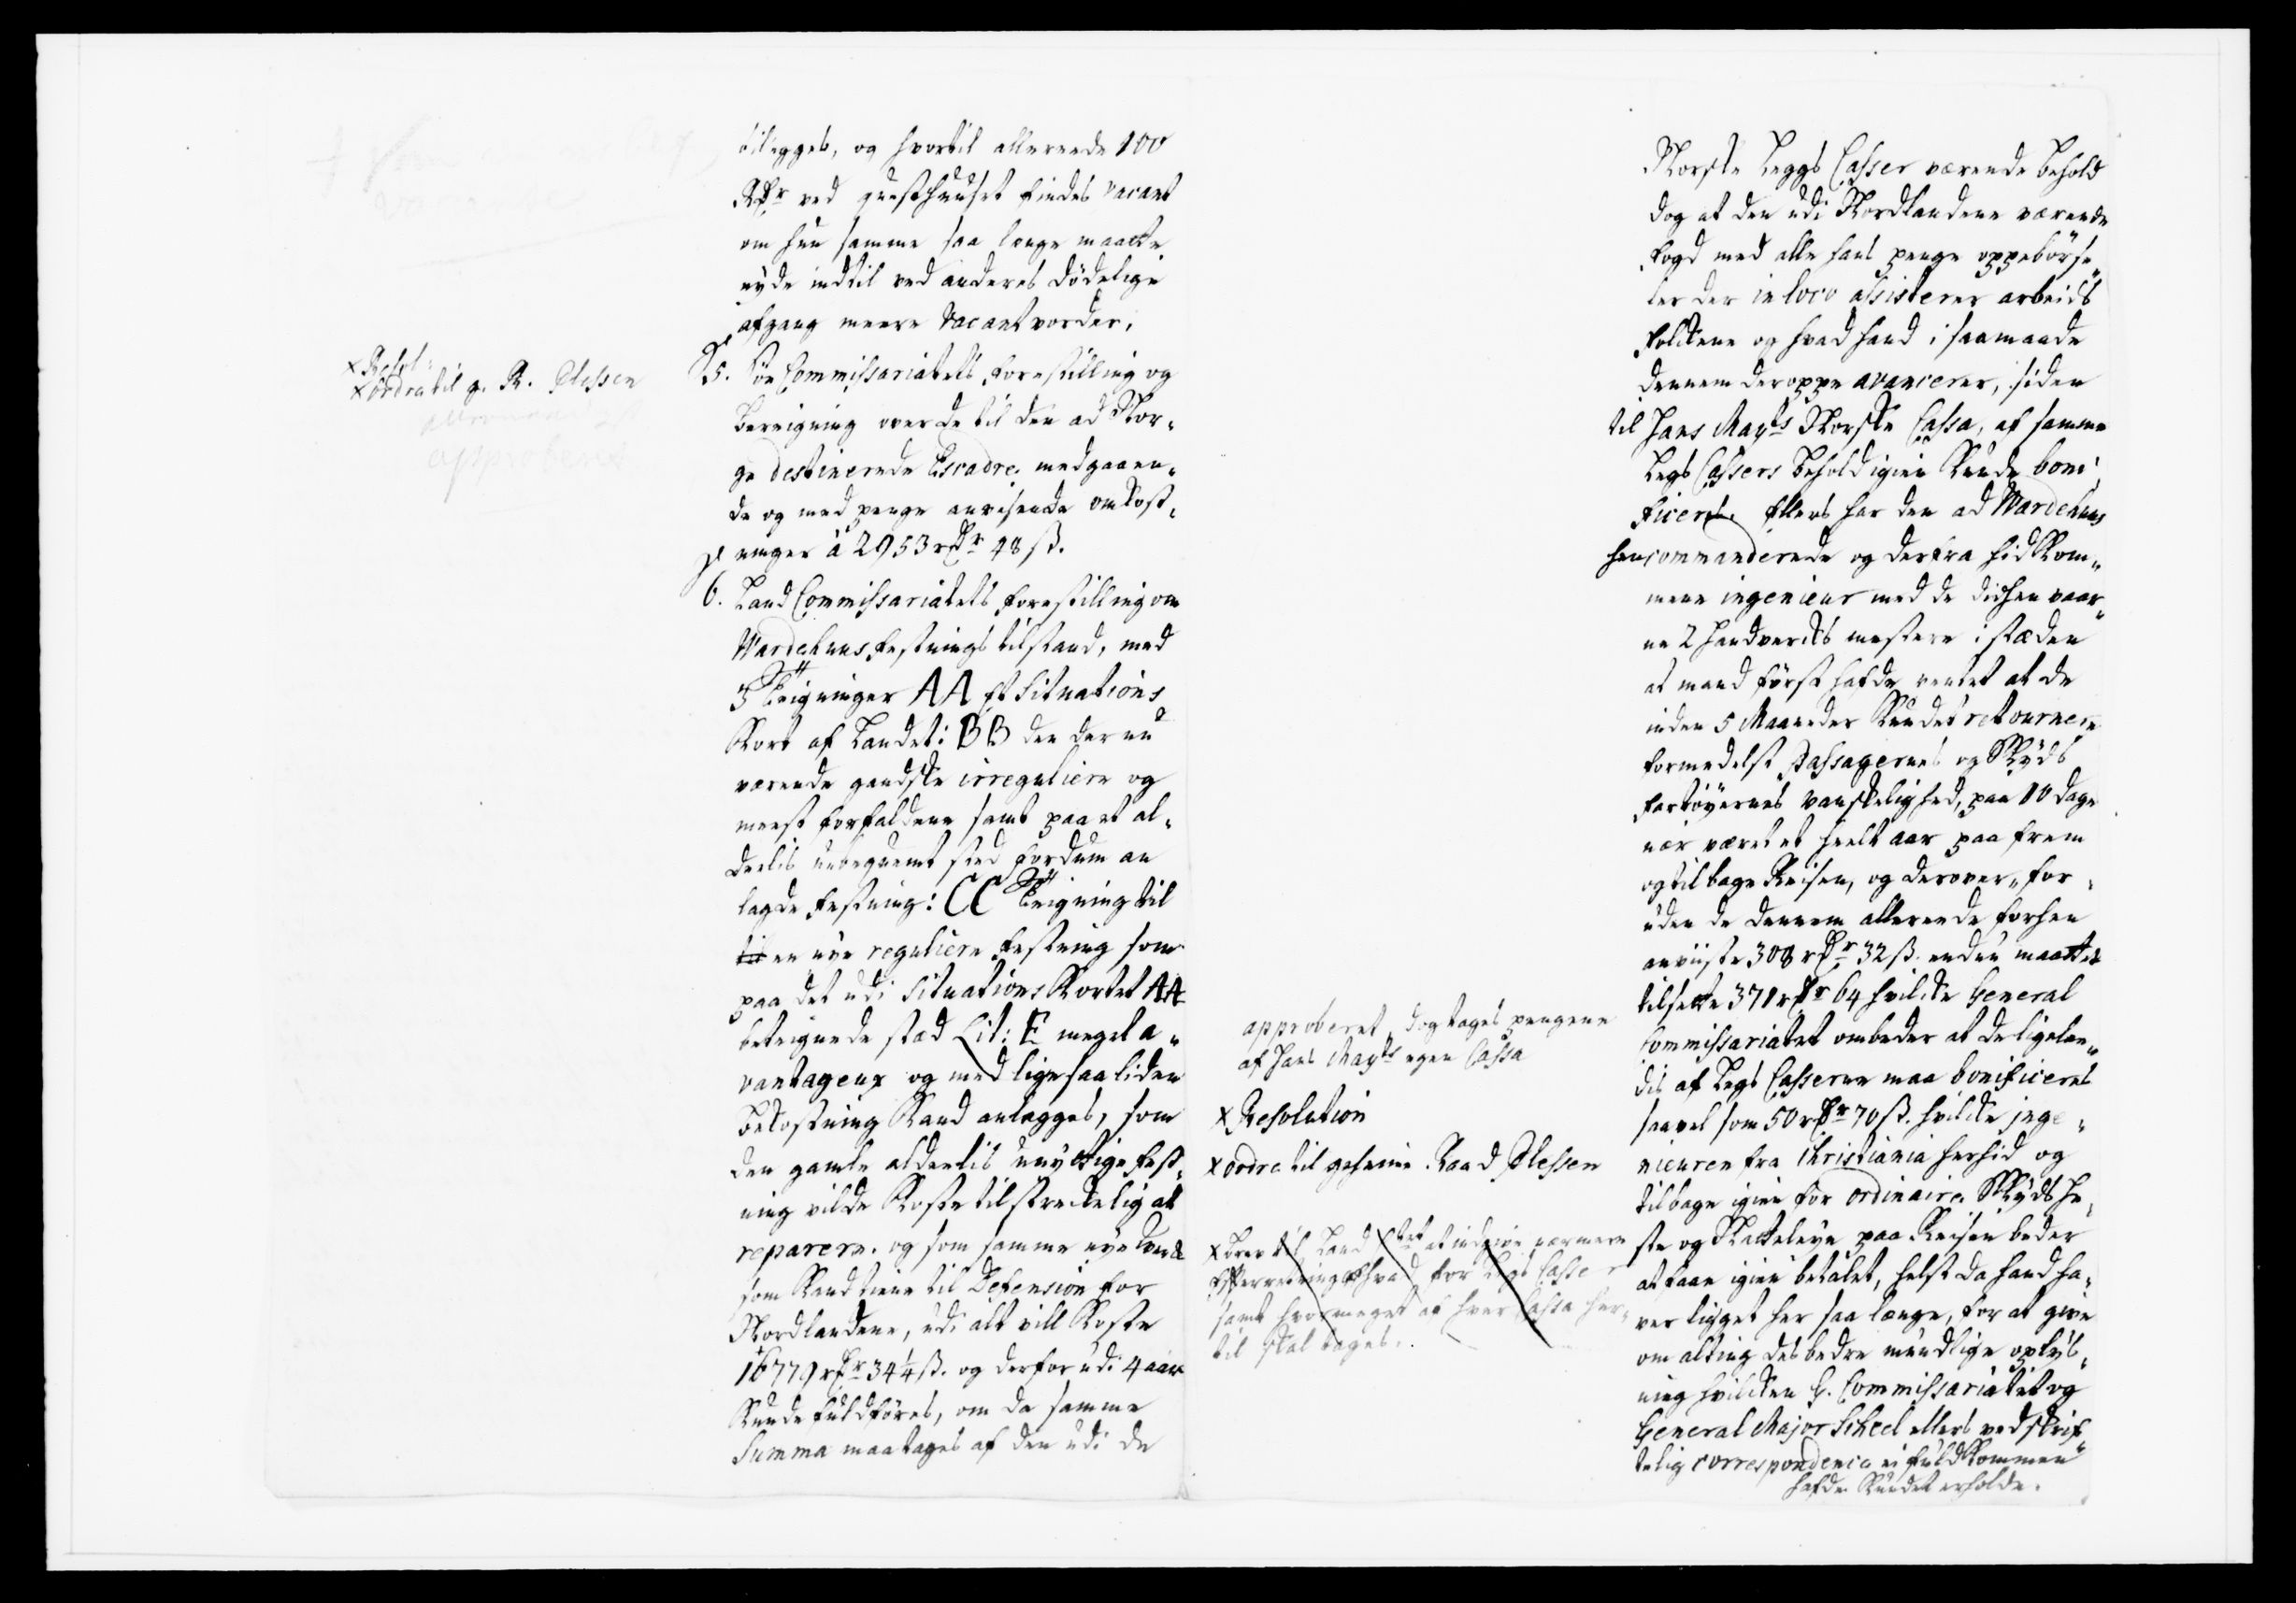 tilegges, og hvortil allereede 100
Rdr ved qvesthuuset findes vacant
om hun samme saa lenge maatte
nyde indtil ved anderes dödelige
afgang meere vacant vorder.
x Resol:
x ordre til g. R. Plessen
allernaadigst
approberet
5. Söe Commissariatets forestilling og
bereigning over de til den ad Nor¬
ge destinerede Escadre medgaaen¬
de og med penge anvisende omkost¬
ninger à 2953 rdr 48 ß.
6. Land Commissariatets forestilling om
Wardehuus festnings tilstand, med
3 Teigninger AA Et Situations
Kort af Landet: BB den der nu
værende gandske irreguliere og
meest forfaldene samt paa et al¬
deelis unbeqvemt sted fordum an
lagde festning: CC Teigning til
til en nye reguliere festning som
paa det udi Situations Kortet AA
beteignede stæd Lit: E meget a¬
vantageux og med lige saa liden
bekostning Kand anlegges, som
den gamle aldeelis unyttige fest¬
ning vilde Koste tilstreckelig at
reparere. og som samme nye verck
som Kand tiene til Defension for
Nordlandene, udi alt vill Koste
16779 rdr 34 1/4 ß. og derfor udi 4 aar
Kunde fuldföres, om da samme
Summa maa tages af den udi de
approberet, dog tages pengene
af Hans Mayts egen Cassa
x Resolution
x ordre til geheime Raad Plessen
x brev til Land Ctet at indgive nærmere
Efterretning hvad for Legs Casser
samt hvor meget af hver Cassa her¬
til skal tages.
Norske Leggs Casser værende behold
dog at den udi Nordlandene værende
fogd med alle hans penge oppebörse¬
ler der in loco assisterer arbeids
folckene og hvad hand i saa maade
dennem deroppe avancerer, siden
til Hans Mayts Norske Cassa, af samme
Legs Cassers behold igien Kunde boni¬
ficeres. Ellers har den ad Wardehuus
hen commanderede og derfra hid Kom¬
mene ingenieur med de didhen vaar¬
ne 2 Handvercks mestere i stæden
at mand först hafde ventet at de
inden 5 Maaneder Kundet retournere
formedelst Passagernes og Skyds
fartöyernes vanskelighed, paa 10 dage
nær været et heelt aar paa frem
og tilbage Reisen, og derover, for¬
uden de dennem allereede forhen
anviiste 308 rdr 32 ß. endnu maattet
tilsette 371 rdr 64 hvilcke General
Commissariatet ombeder at de ligelee¬
dis af Legs Casserne maa bonificeres
saavel som 50 rdr 70 ß. hvilcke inge¬
nieuren fra Christiania herhid og
tilbage igien for ordinaire Skyds he¬
ste og Natteleye paa Reisen beder
at faae igien betalt, helst da hand ha¬
ver ligget her saa længe, for at give
om alting des bedre mundtlige oplys¬
ning hvilcken G. Commissariatet og
General Major Scheel ellers ved skrif¬
telig correspondence ei fuldkommen
hafde Kundet erholde.